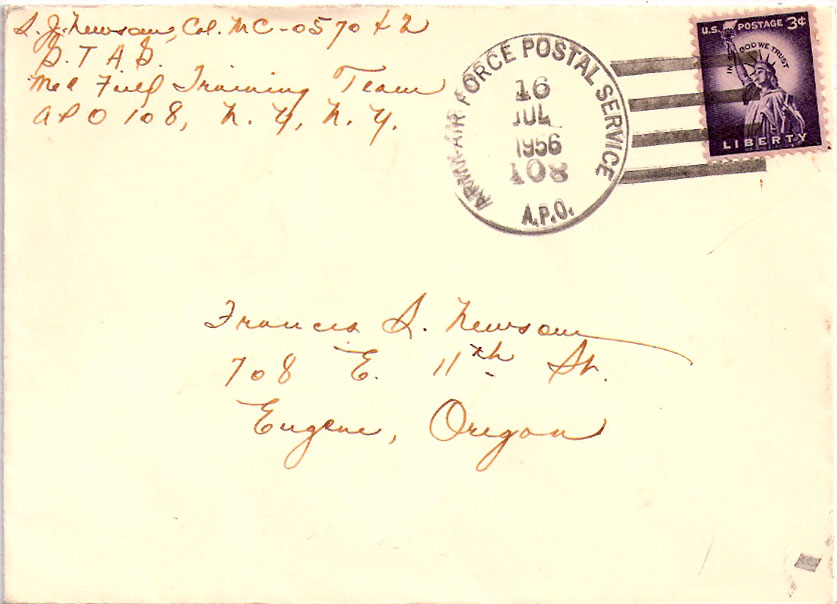 S. J. Newsom, Col. MC-0570 + 2
D. T. A. D.
Med Field Training Team
APO 108, N. Y., N. Y.
ARMY-AIR FORCE POSTAL SERVICE
16
JUL
1956
108
A.P.O.
U.S. POSTAGE 3¢
IN GOD WE TRUST
LIBERTY
Francis S. Newsom
708 E. 11th St.
Eugene, Oregon